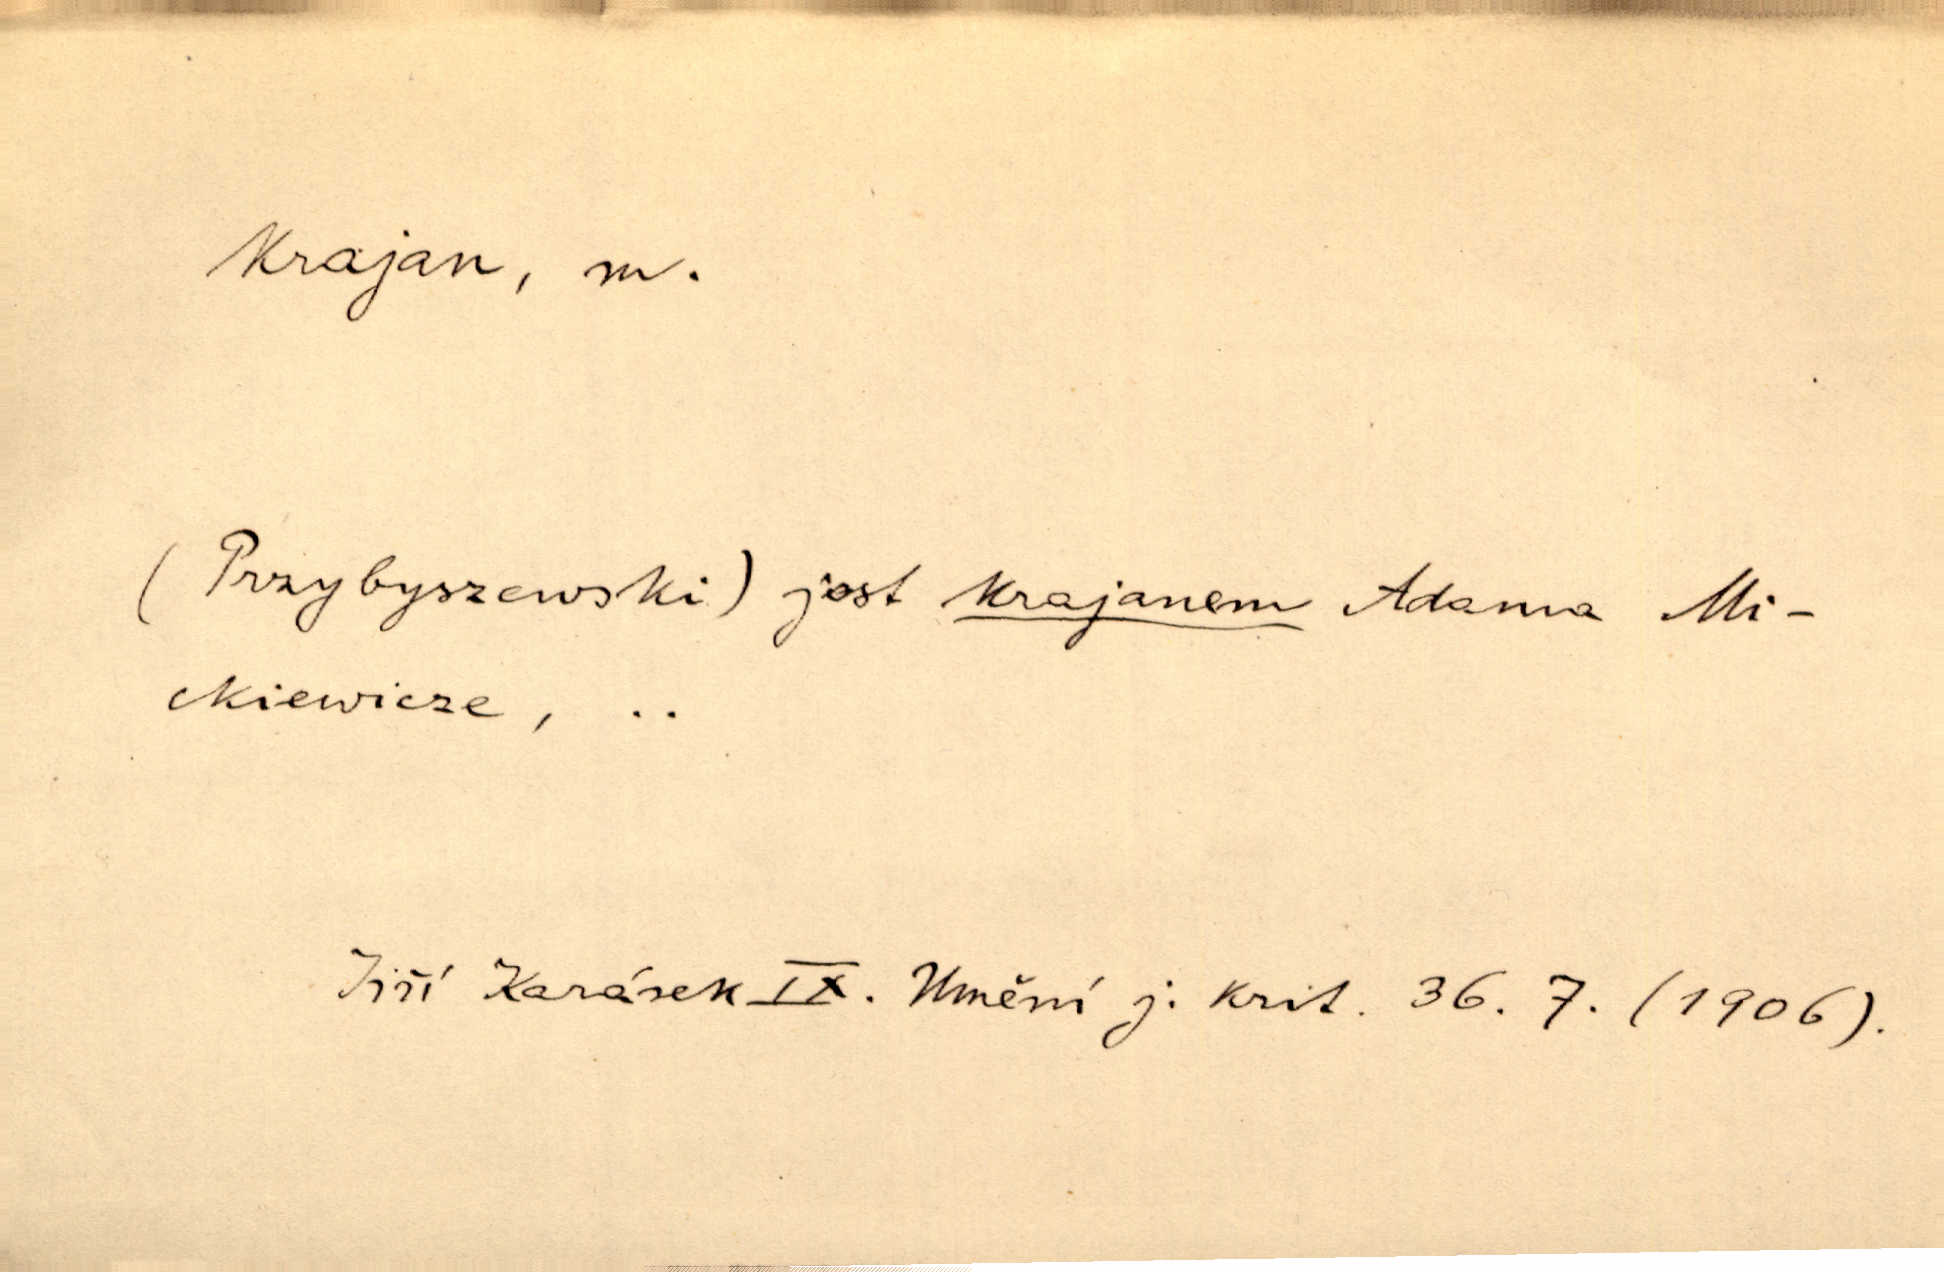 Krajan, m.
(Przybyszewski) jest krajanem Adama Mi-
ckiewicze, ..
Jiří Karásek IX. Umění j. krit. 36. 7. (1906).